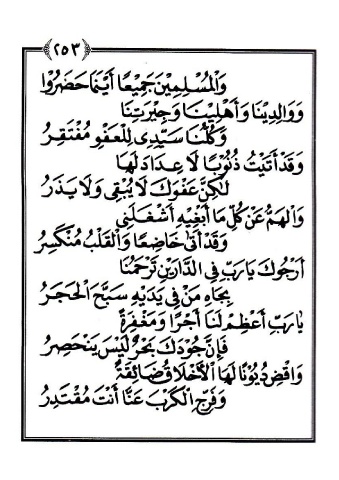 ٢٥٣
وَالْمُسْلِمِيْنَ جَمِيْعًا أَيْنَمَا حَضَرُوْا
وَوَالِدِيْنَا وَأَهْلِيْنَا وَجِيْرَتِنَا
وَكُلُّنَا سَيِّدِى لِلْعَفْوِ مُفْتَقِرُ
وَقَدْ أَتَيْتُ ذُنُوْبًا لَا عِدَادَ لَهَا
لَكِنَّ عَفْوَكَ لَا يُبْقِى وَلَا يَذَرُ
وَالْهَمُّ عَنْ كُلِّ مَا أَبْغِيْهِ أَشْغَلَنِي
وَقَدْ أَتَى خَاضِعًا وَالْقَلْبُ مُنْكَسِرُ
أَرْجُوْكَ يَارَبِّ فِي الدَّارَيْنِ تَرْحَمُنَا
بِجَاهِ مَنْ فِي يَدَيْهِ سَبَّحَ الْحَجَرُ
يَارَبِّ أَعْظِمْ لَنَا أَجْرًا وَمَغْفِرَةً
فَإِنَّ جُوْدَكَ بَحْرٌ لَيْسَ يَنْحَصِرُ
وَاقْضِ دُيُوْنًا لَهَا الْأَخْلَاقُ ضَائِقَةٌ
وَفَرِّجِ الْكَرْبَ عَنَّا أَنْتَ مُقْتَدِرُ